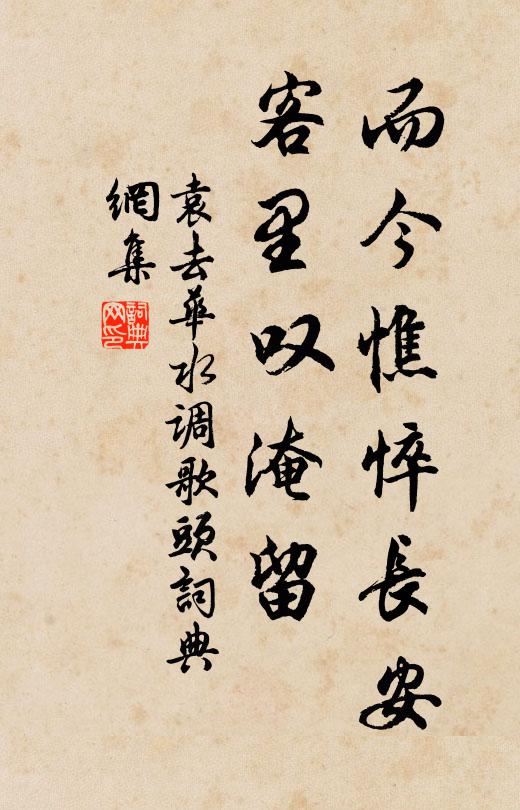 而今憔悴長安
客里叹淹留
袁去華水调歌頭詞典
網集
詞典网印